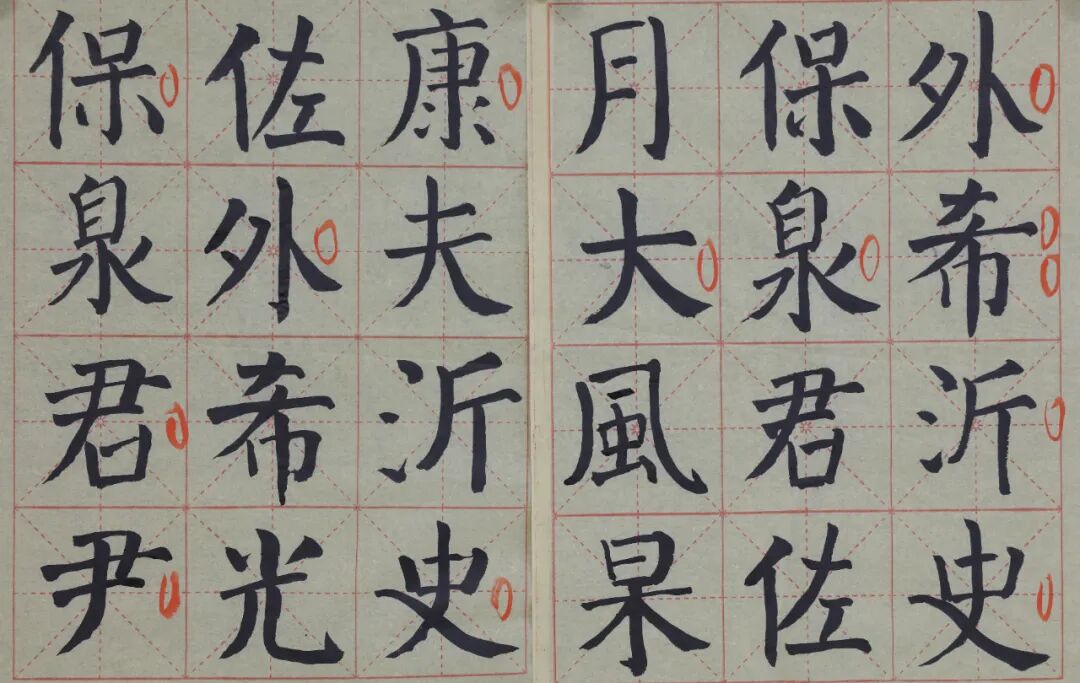 外希沂史
保泉君佐
月大風杲
康夫沂史
佐外希光
保泉君尹